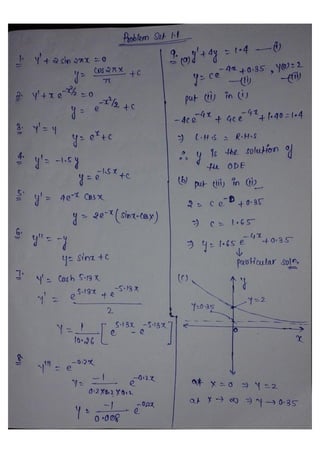 Problem Set 1.1
1. y' + 2 sin 2πx = 0
y = cos 2πx / π + c
2. y' + x e^{-x²/2} = 0
y = e^{-x²/2} + c
3. y' = y
y = e^x + c
4. y' = -1.5y
y = e^{-1.5x} + c
5. y' = 4e^{-x} cos x
y = 2e^{-x} (sin x - cos x)
6. y'' = -y
y = sin x + c
7. y' = cosh 5.13x
y' = e^{5.13x} + e^{-5.13x} / 2
y = 1/10.26 [e^{5.13x} - e^{-5.13x}]
8. y''' = e^{-0.2x}
y = -1 / 0.2x0.2x0.2 e^{-0.2x}
y = -1 / 0.008 e^{-0.2x}
9. (a) y' + 4y = 1.4 — (i)
y = ce^{-4x} + 0.35, y(0) = 2
— (ii) — (iii)
put (ii) in (i)
-4ce^{-4x} + 4ce^{-4x} + 1.40 = 1.4
⇒ L.H.S = R.H.S
∴ y is the solution of
the ODE
(b) put (iii) in (ii)
2 = ce^{-0} + 0.35
⇒ c = 1.65
⇒ y = 1.65 e^{-4x} + 0.35
↓
particular soln.
(c) y
y=2
y=0.35
0
x
at x = 0 ⇒ y = 2
at x → ∞ ⇒ y → 0.35